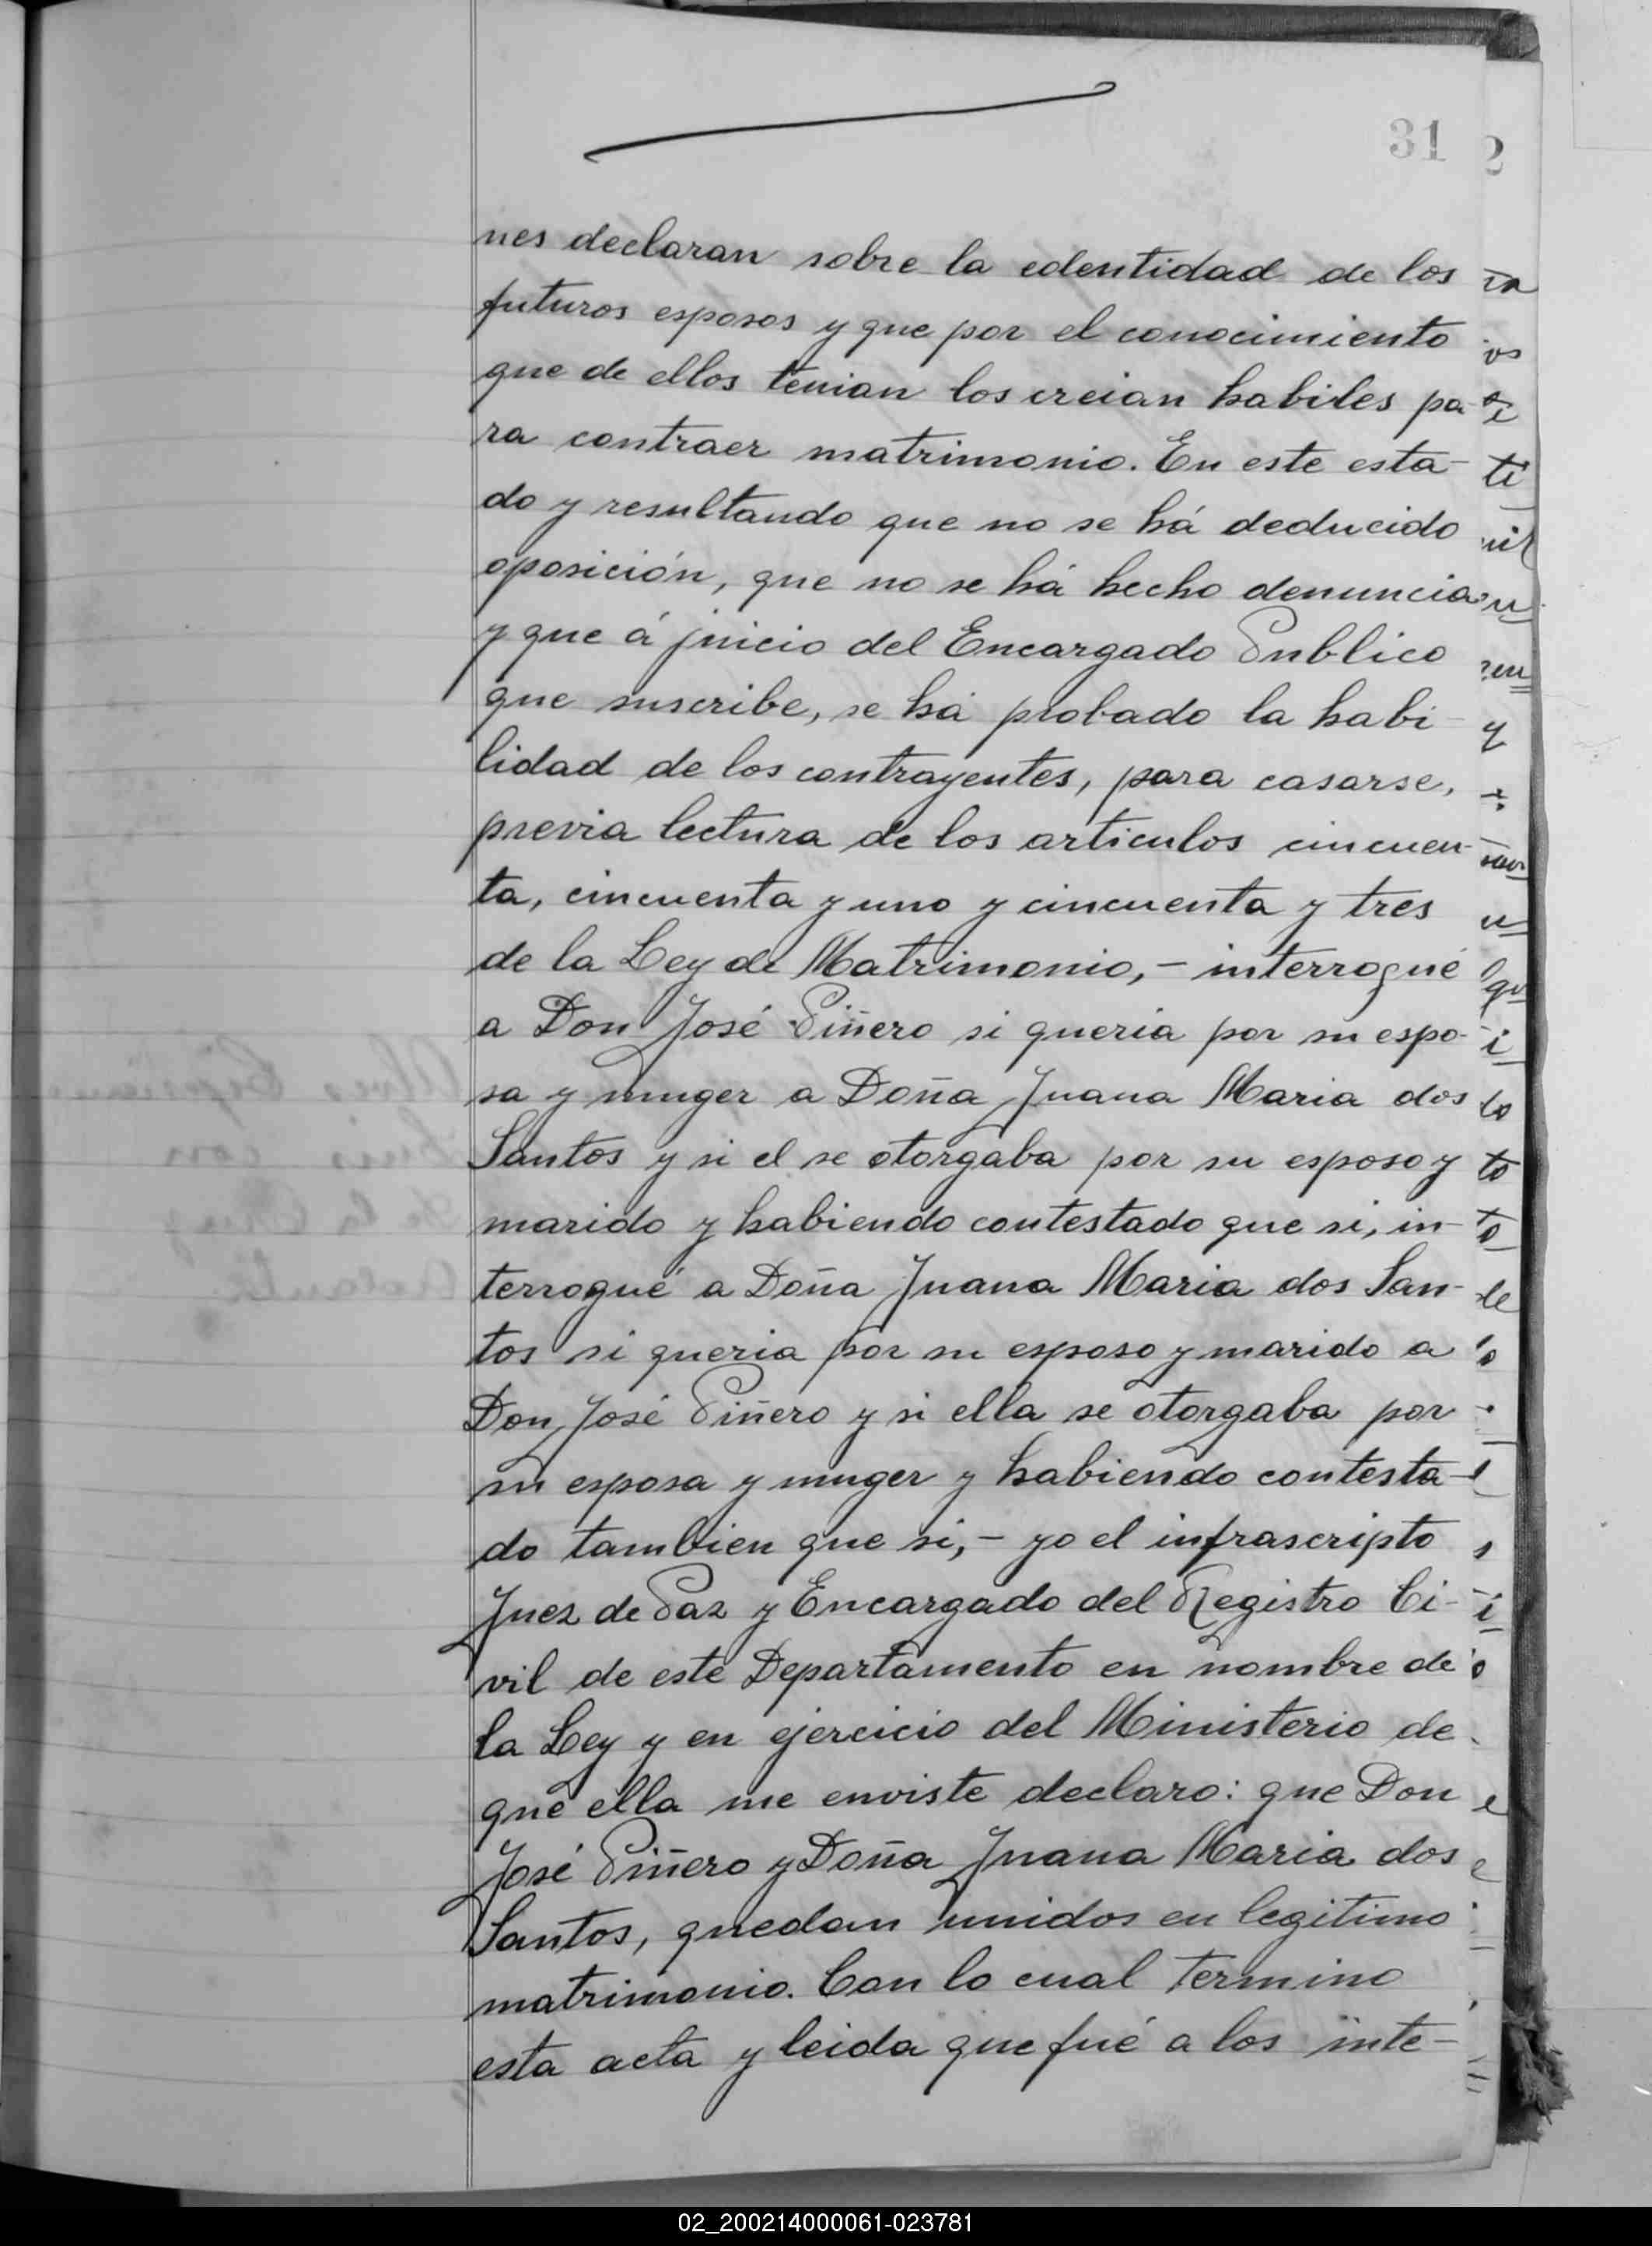 31
nes declaran sobre la edentidad de los
futuros esposos y que por el conocimiento
que de ellos tenian los creian habiles pa-
ra contraer matrimonio. En este esta-
do y resultando que no se há deducido
oposición, que no se há hecho denuncia
y que á juicio del Encargado Publico
que suscribe, se há probado la habi-
lidad de los contrayentes, para casarse,
previa lectura de los articulos cincuen-
ta, cincuenta y uno y cincuenta y tres
de la Ley de Matrimonio,- interrogué
a Don José Piñero si queria por su espo-
sa y muger a Doña Juana Maria dos
Santos y si el se otorgaba por su esposo y
marido y habiendo contestado que si, in-
terrogué a Doña Juana Maria dos San-
tos si queria por su esposo y marido a
Don José Piñero y si ella se otorgaba por
su esposa y muger y habiendo contesta-
do tambien que si,- yo el infrascripto
Juez de Paz y Encargado del Registro Ci-
vil de este Departamento en nombre de
la Ley y en ejercicio del Ministerio de
que ella me enviste declaro: que Don
José Piñero y Doña Juana Maria dos
Santos, quedan unidos en legitimo
matrimonio. Con lo cual termino
esta acta y leida que fué a los inte-
02_200214000061-023781